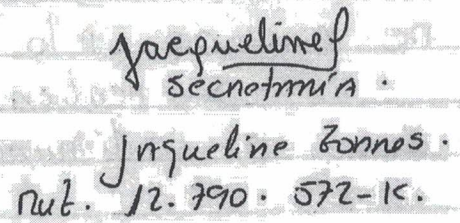 Jacqueline
Secretaria.
Jaqueline Torres.
Rut. 12.790.572-K.